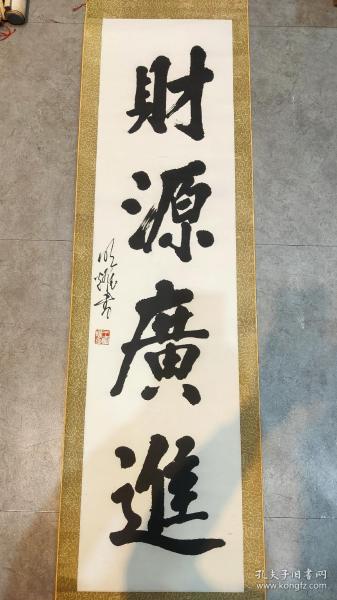 財源廣進
孔夫子旧书网
www.kongfz.com